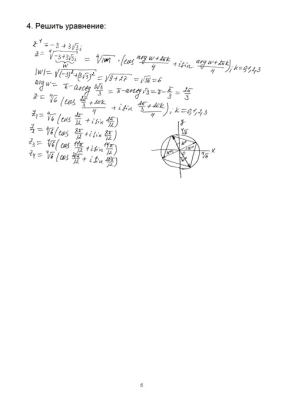 4. Решить уравнение:
z⁴ = -3 + 3√3 i
z = ⁴√(-3+3√3 i) = ⁴√|w| · (cos (arg w + 2πk)/4 + i sin (arg w + 2πk)/4), k = 0,1,2,3
w
|w| = √((-3)² + (3√3)²) = √(9+27) = √36 = 6
arg w = π - arctg 3√3/3 = π - arctg √3 = π - π/3 = 2π/3
z = ⁴√6 (cos (2π/3 + 2πk)/4 + i sin (2π/3 + 2πk)/4), k = 0,1,2,3
z₁ = ⁴√6 (cos 2π/12 + i sin 2π/12)
z₂ = ⁴√6 (cos 8π/12 + i sin 8π/12)
z₃ = ⁴√6 (cos 14π/12 + i sin 14π/12)
z₄ = ⁴√6 (cos 20π/12 + i sin 20π/12)
y
⁴√6
⁴√6
x
6